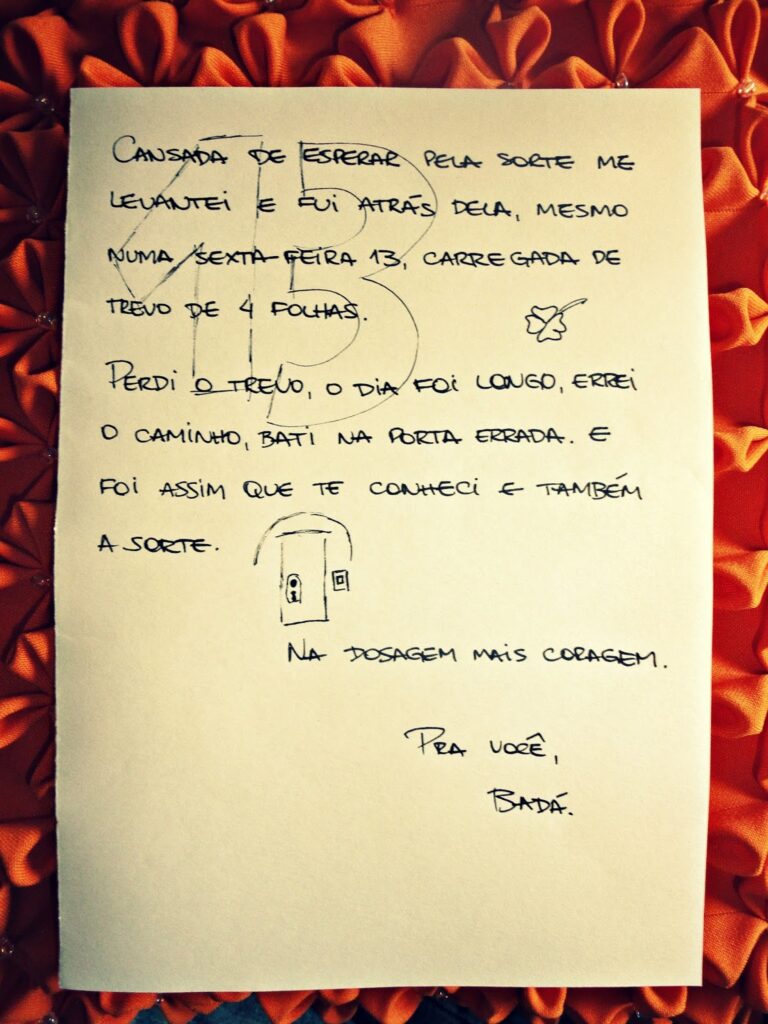 CANSADA DE ESPERAR PELA SORTE ME
LEVANTEI E FUI ATRÁS DELA, MESMO
NUMA SEXTA-FEIRA 13, CARREGADA DE
TREVO DE 4 FOLHAS.
13
PERDI O TREVO, O DIA FOI LONGO, ERREI
O CAMINHO, BATI NA PORTA ERRADA. E
FOI ASSIM QUE TE CONHECI E TAMBÉM
A SORTE.
NA DOSAGEM MAIS CORAGEM.
PRA VOCÊ,
BADÁ.